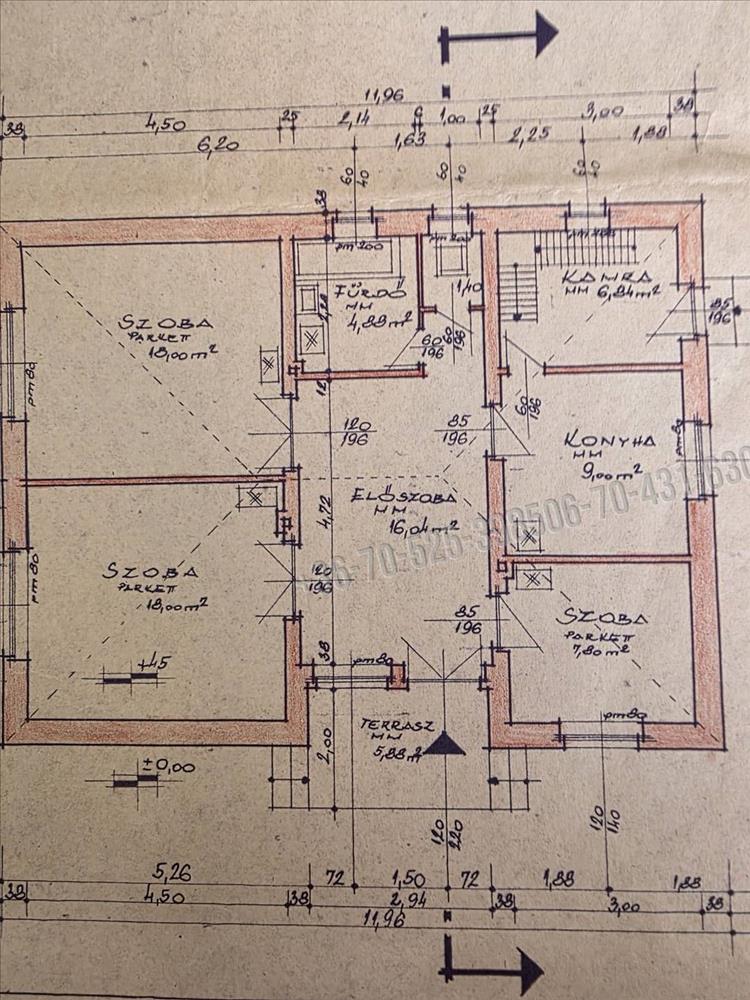 11,96
38 4,50 25 2,14 6 1,00 25 3,00 38
6,20 1,63 2,25 1,88
60 40
60 40
60 40
38
pm 200
pm 200
KAMRA
MM 6,84 m²
FÜRDŐ
MM
4,88 m²
1,40
85
196
SZOBA
PARKETT
18,00 m²
pm 80
60
196
60
196
12
60
196
120
196
85
196
KONYHA
MM
9,00 m²
pm 80
ELŐSZOBA
MM
16,04 m²
4,72
+36-70-525-39
506-70-431
630
SZOBA
PARKETT
18,00 m²
pm 80
120
196
85
196
SZOBA
PARKETT
7,80 m²
38
pm 80
+45
pm 80
TERRASZ
MM
5,88 m²
2,00
±0,00
120
220
120
140
5,26 72 1,50 72 1,88 1,88
38 4,50 38 2,94 38 3,00 38
11,96